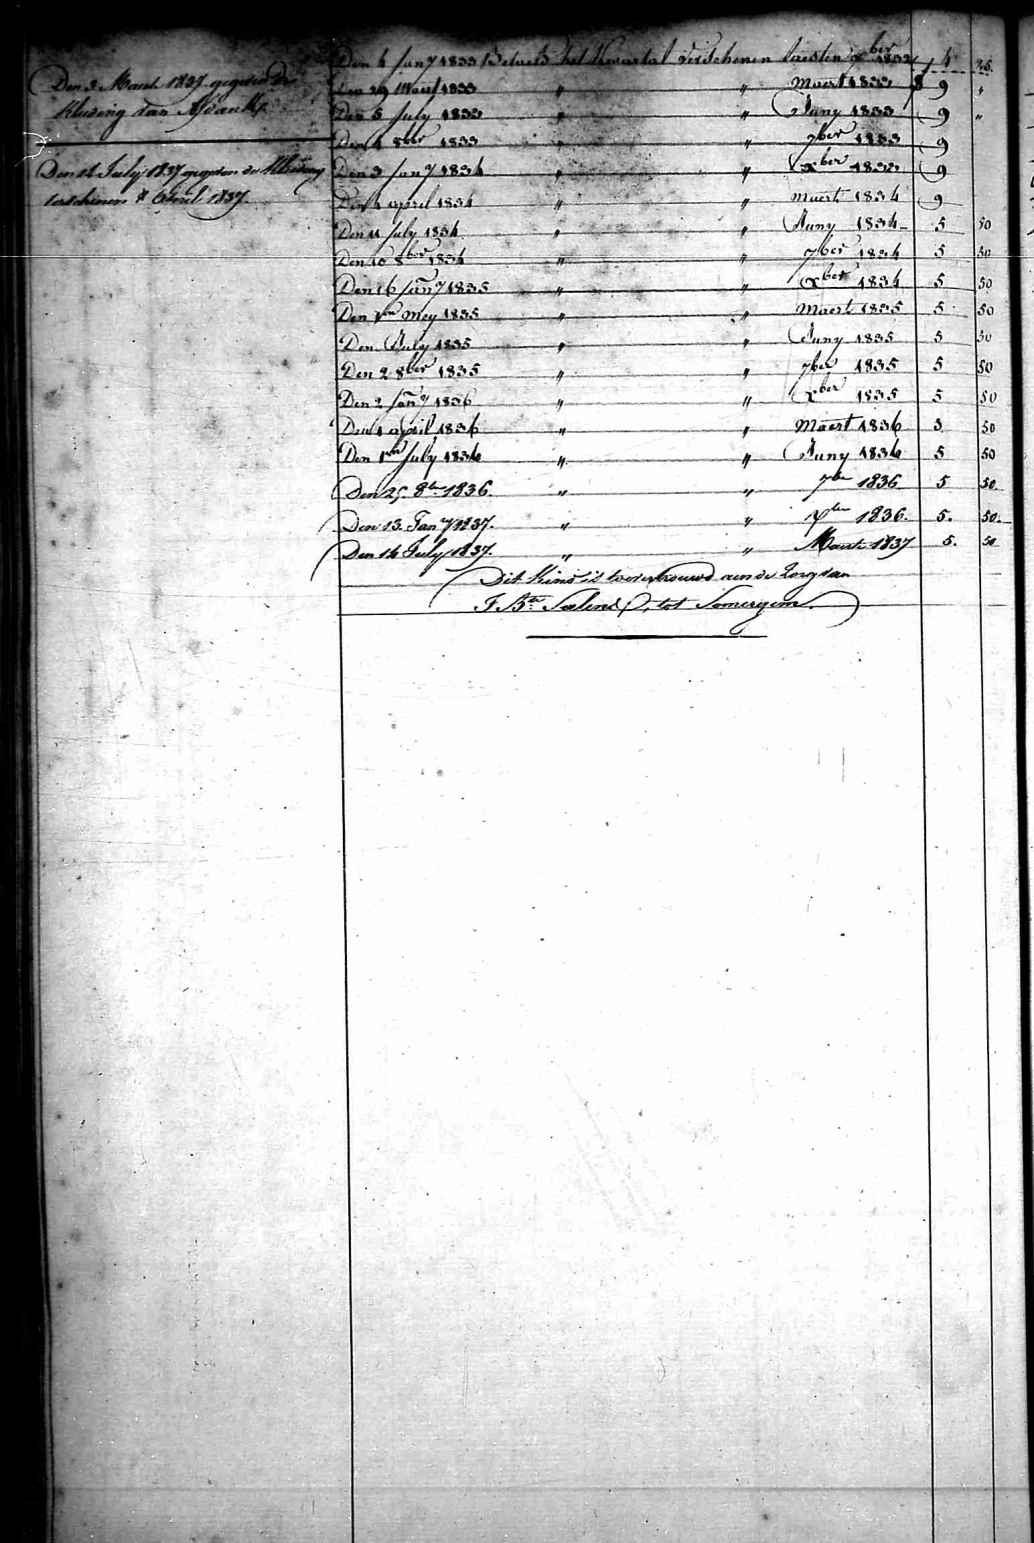 Den 3 Maart 1837 gegeven de
Kleeding van
Den 14 July 1837 gegeven de Kleeding
verschenen April 1837.
Den 4 Jany 1833 Betaelt het Kwartal verschenen laesten xber 1832 f 4
Den 29 Maert 1833 " " Maert 1833 9 "
Den 5 July 1833 " " Juny 1833 9 "
Den 4 8ber 1833 " " 7ber 1833 9
Den 3 Jany 1834 " " xber 1833 9
Den april 1834 " " Maert 1834 9
Den 11 July 1834 " " Juny 1834 5 50
Den 10 8ber 1834 " " 7ber 1834 5 50
Den 16 Jany 1835 " " xber 1834 5 50
Den 1en Mey 1835 " " Maert 1835 5 50
Den July 1835 " " Juny 1835 5 50
Den 2 8ber 1835 " " 7ber 1835 5 50
Den 2 Jany 1836 " " xber 1835 5 50
Den 1 april 1836 " " Maert 1836 5 50
Den 1en July 1836 " " Juny 1836 5 50
Den 25 8ber 1836. " " 7ber 1836 5 50
Den 13. Jany 1837. " " xber 1836. 5. 50.
Den 14 July 1837. " " Maart 1837 5. 50
Dit Kind is toevertrouwd aen de Zorg van
J Bte tot Somergem.